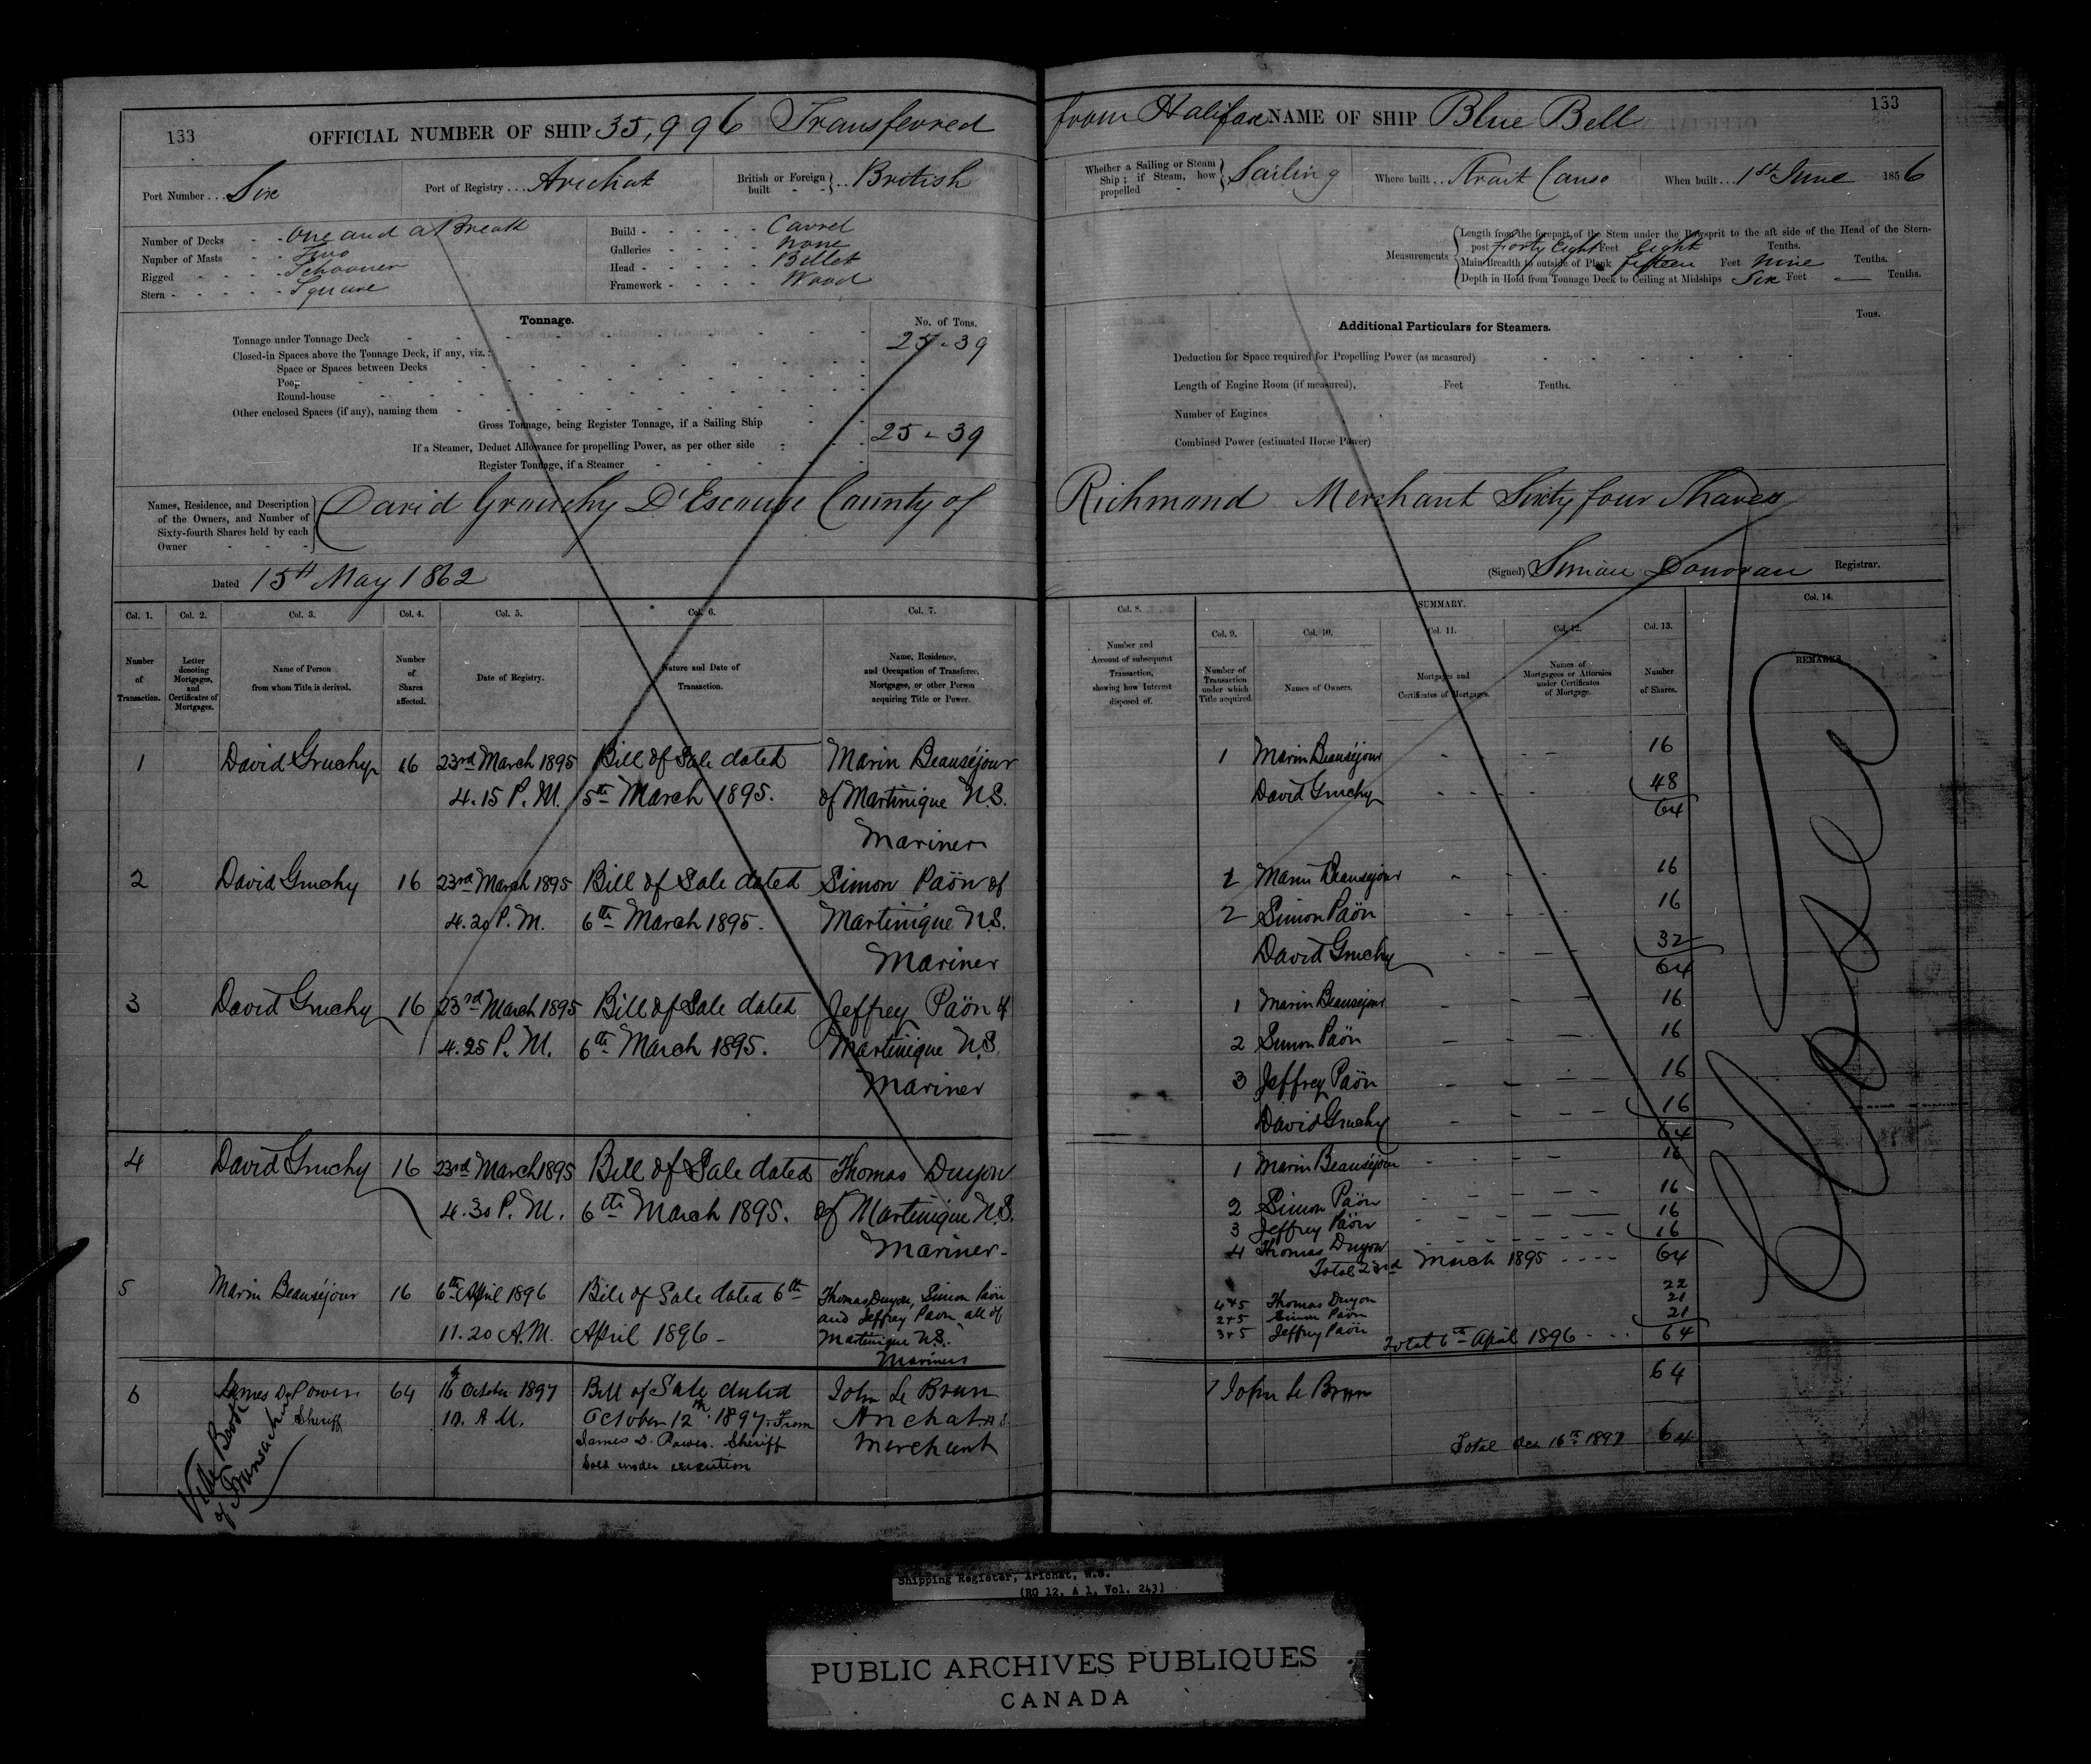 133
OFFICIAL NUMBER OF SHIP 35,996 Transferred
Port Number . . . Six
Port of Registry . . . Arichat
British or Foreign built - - } . . British
Number of Decks - - One and a Break
Number of Masts - - Two
Rigged - - - - Schooner
Stern - - - - - Square
Build - - - - - - Carvel
Galleries - - - - - None
Head - - - - - - Billet
Framework - - - - - Wood
Tonnage.
No. of Tons.
Tonnage under Tonnage Deck 25-39
Closed-in Spaces above the Tonnage Deck, if any, viz.:
Space or Spaces between Decks
Poop
Round-house
Other enclosed Spaces (if any), naming them
Gross Tonnage, being Register Tonnage, if a Sailing Ship 25-39
If a Steamer, Deduct Allowance for propelling Power, as per other side
Register Tonnage, if a Steamer
Names, Residence, and Description of the Owners, and Number of Sixty-fourth Shares held by each Owner } David Grouchy D'Escouse County of
Dated 15th May 1862
Col. 1. Col. 2. Col. 3. Col. 4. Col. 5. Col. 6. Col. 7.
Number of Transaction.
Letter denoting Mortgages, and Certificates of Mortgages.
Name of Person from whom Title is derived.
Number of Shares affected.
Date of Registry.
Nature and Date of Transaction.
Name, Residence, and Occupation of Transferee, Mortgagee, or other Person acquiring Title or Power.
1 David Gruchy 16 23rd March 1895 Bill of Sale dated Marin Beauséjour
4.15 P.M. 5th March 1895. of Martinique N.S.
Mariner
2 David Gruchy 16 23rd March 1895 Bill of Sale dated Simon Paön of
4.20 P.M. 6th March 1895. Martinique N.S.
Mariner
3 David Gruchy 16 23rd March 1895 Bill of Sale dated Jeffrey Paön of
4.25 P.M. 6th March 1895. Martinique N.S.
Mariner
4 David Gruchy 16 23rd March 1895 Bill of Sale dated Thomas Duyon
4.30 P.M. 6th March 1895. of Martinique N.S.
Mariner-
5 Marin Beauséjour 16 6th April 1896 Bill of Sale dated 6th Thomas Duyon, Simon Paön
11.20 A.M. April 1896- and Jeffrey Paon, all of
Martinique N.S.
Mariners
6 James D. Power 64 16th October 1897 Bill of Sale dated John Le Brun
Sheriff 10. A M. October 12th 1897. From Arichat N.S.
James D. Power. Sheriff Merchant
Sold under execution
Vide Book
of Transactions
from Halifax NAME OF SHIP Blue Bell
133
Whether a Sailing or Steam Ship; if Steam, how propelled - } Sailing
Where built . . Strait Canso
When built . . . 1st June 1856
Measurements
Length from the forepart of the Stem under the Bowsprit to the aft side of the Head of the Stern-
post Forty Eight Feet Eight Tenths.
Main Breadth to outside of Plank Fifteen Feet Nine Tenths.
Depth in Hold from Tonnage Deck to Ceiling at Midships Six Feet — Tenths.
Additional Particulars for Steamers.
Tons.
Deduction for Space required for Propelling Power (as measured)
Length of Engine Room (if measured), Feet Tenths.
Number of Engines
Combined Power (estimated Horse Power)
Richmond Merchant Sixty four Shares
(Signed) Simian Donovan Registrar.
Col. 8. SUMMARY. Col. 14.
Col. 9. Col. 10. Col. 11. Col. 12. Col. 13.
Number and Account of subsequent Transaction, showing how Interest disposed of.
Number of Transaction under which Title acquired.
Names of Owners.
Mortgages and Certificates of Mortgages.
Names of Mortgagees or Attornies under Certificates of Mortgage.
Number of Shares.
REMARKS.
1 Marin Beauséjour 16
David Gruchy 48
64
1 Marin Beauséjour 16
2 Simon Paön 16
David Gruchy 32
64
1 Marin Beauséjour 16
2 Simon Paön 16
3 Jeffrey Paön 16
David Gruchy 16
64
1 Marin Beauséjour 16
2 Simon Paön 16
3 Jeffrey Paön 16
4 Thomas Duyon 16
Total 23rd March 1895 64
4+5 Thomas Duyon 22
2+5 Simon Paön 21
3+5 Jeffrey Paön 21
Total 6th April 1896 64
John Le Brun 64
Total Oct 16th 1897 64
Closed
Shipping Register, Arichat, N.S.
(RG 12, A 1, Vol. 243)
PUBLIC ARCHIVES PUBLIQUES
CANADA